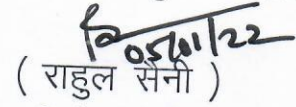 05/01/22
( राहुल सैनी )